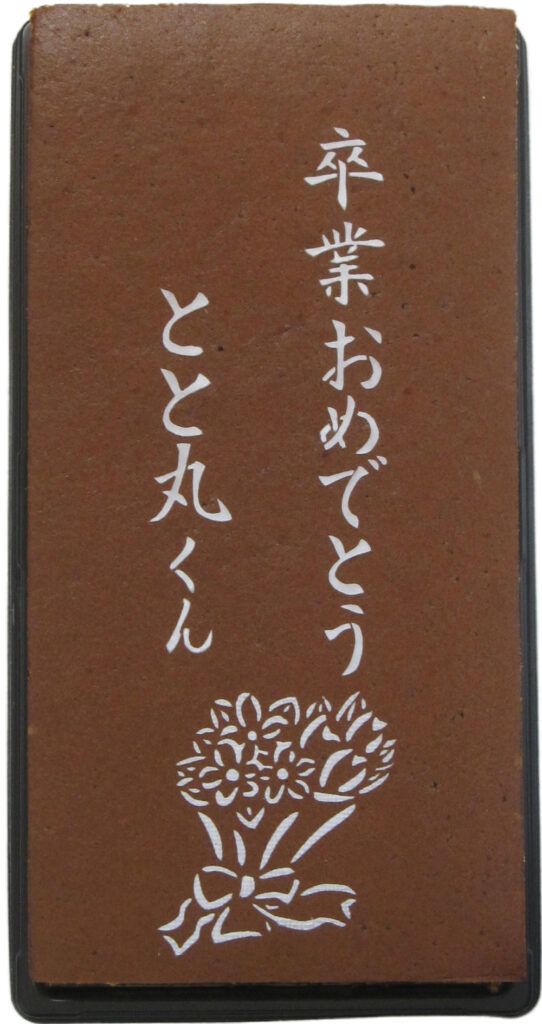 卒業おめでとう
とと丸くん